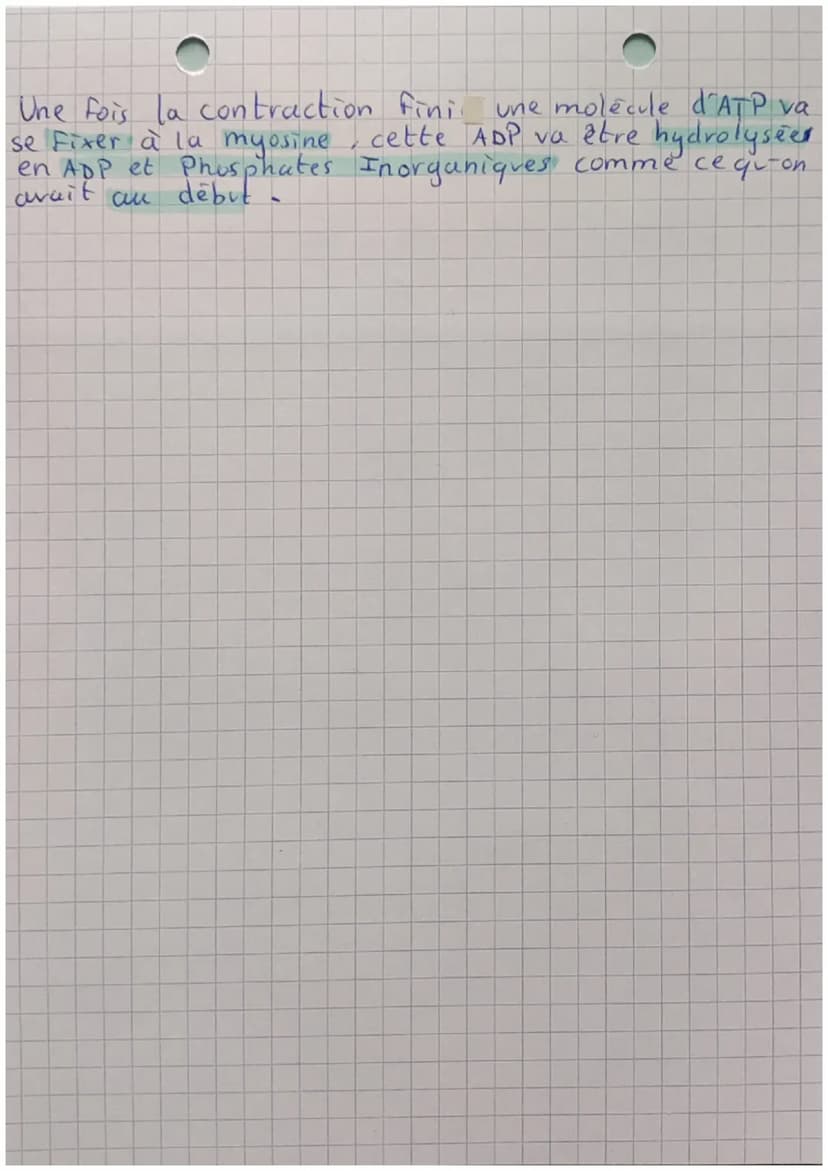 Une fois la contraction fini une molécule d'ATP va
se Fixer à la myosine, cette ADP va être hydrolysées
en ADP et Phosphates Inorganiques comme ce qu-on
avait au début.